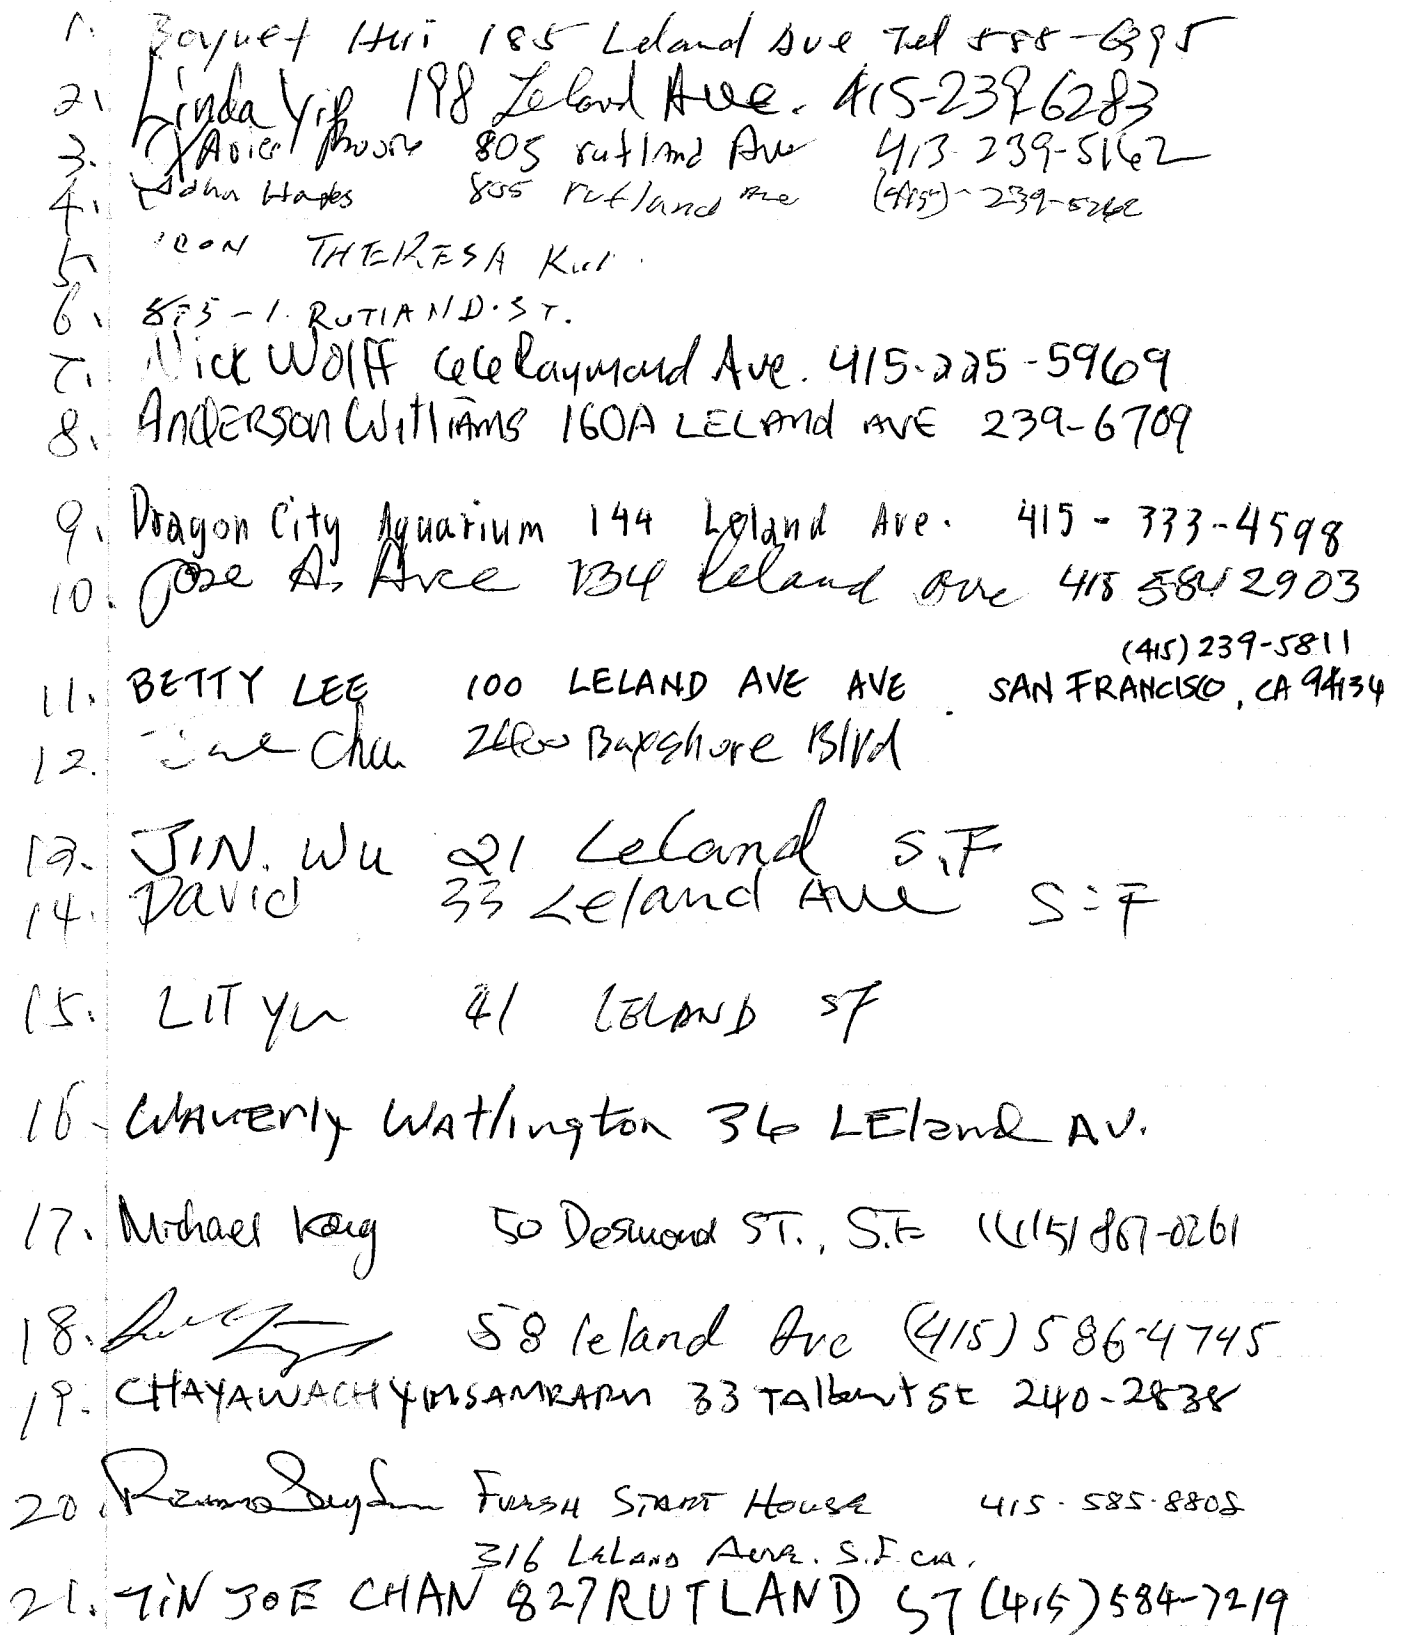 1. Boyuet Hui 185 Leland Ave Tel 585-6395
2. Linda Yip 198 Leland Ave. 415-239 6283
3. Xavier Moore 805 rutland Ave 413-239-5162
4. 805 rutland Ave (415)-239-5262
5. THERESA Kui.
6. 875-1. RUTLAND. ST.
7. Nick Wolff 66 Raymond Ave. 415-225-5969
8. ANDERSON Williams 160A LELAND AVE 239-6709
9. Dragon City Aquarium 144 Leland Ave. 415-333-4598
10. Jose A. Arce 134 Leland ave 415 584 2903
(415) 239-5811
11. BETTY LEE 100 LELAND AVE AVE. SAN FRANCISCO, CA 94134
12. Chu 2400 Bayshore Blvd
13. JIN. Wu 21 Leland S.F
14. David 33 Leland Ave S=F
15. LIT Yu 41 LELAND SF
16- Waverly Watlington 36 LEland AV.
17. Michael Kong 50 Desmond ST., S.F. (415) 867-0261
18. 58 leland Ave (415) 586-4745
19. CHAYAWACH 33 Talbert St 240-2838
20. FRESH START HOUSE 415-585-8808
316 LELAND AVE. S.F. CA.
21. TIN JOE CHAN 827 RUTLAND ST (415) 584-7219